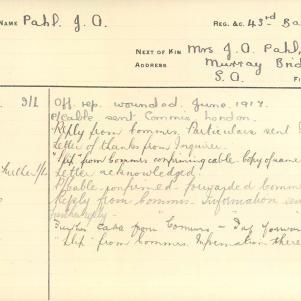 NAME Pahl. J. A. REG. &C. 43rd Ba
NEXT OF KIN Mrs J. A. Pahl,
ADDRESS Murray Brid
S.A.
3/L Off. rep. wounded. June. 1917.
Cable sent Commrs, London.
Reply from Commrs. Particulars sent
Letter of thanks from Inquirer.
"Slip" from Commrs confirming cable. Copy of same
Letter acknowledged.
Cable confirmed - forwarded Comm
Reply from Commrs. Information sen
Further cable from "Commrs -
slip" from Commrs. Information there